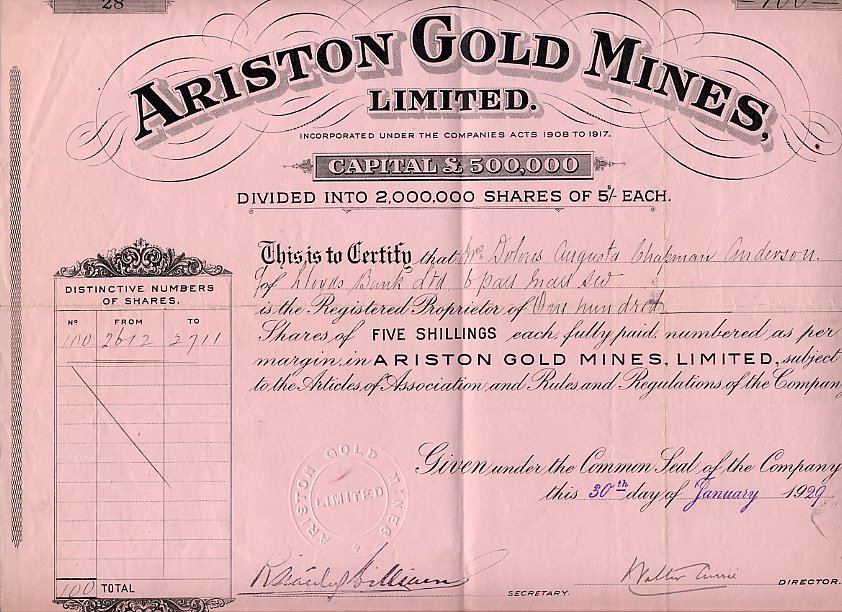 28
100
ARISTON GOLD MINES,
LIMITED.
INCORPORATED UNDER THE COMPANIES ACTS 1908 TO 1917.
CAPITAL £500,000
DIVIDED INTO 2,000,000 SHARES OF 5/- EACH.
This is to Certify that Mrs Dolores Augusta Chapman Anderson.
of Lloyds Bank Ltd 6 Pall Mall SW
is the Registered Proprietor of One hundred
Shares of FIVE SHILLINGS each, fully paid, numbered as per
margin, in ARISTON GOLD MINES, LIMITED, subject
to the Articles of Association and Rules and Regulations of the Company
DISTINCTIVE NUMBERS
OF SHARES.
No FROM TO
100 2612 2711
100 TOTAL
Given under the Common Seal of the Company
this 30th day of January 1929
ARISTON GOLD MINES
LIMITED
SECRETARY.
Walter Currie
DIRECTOR.